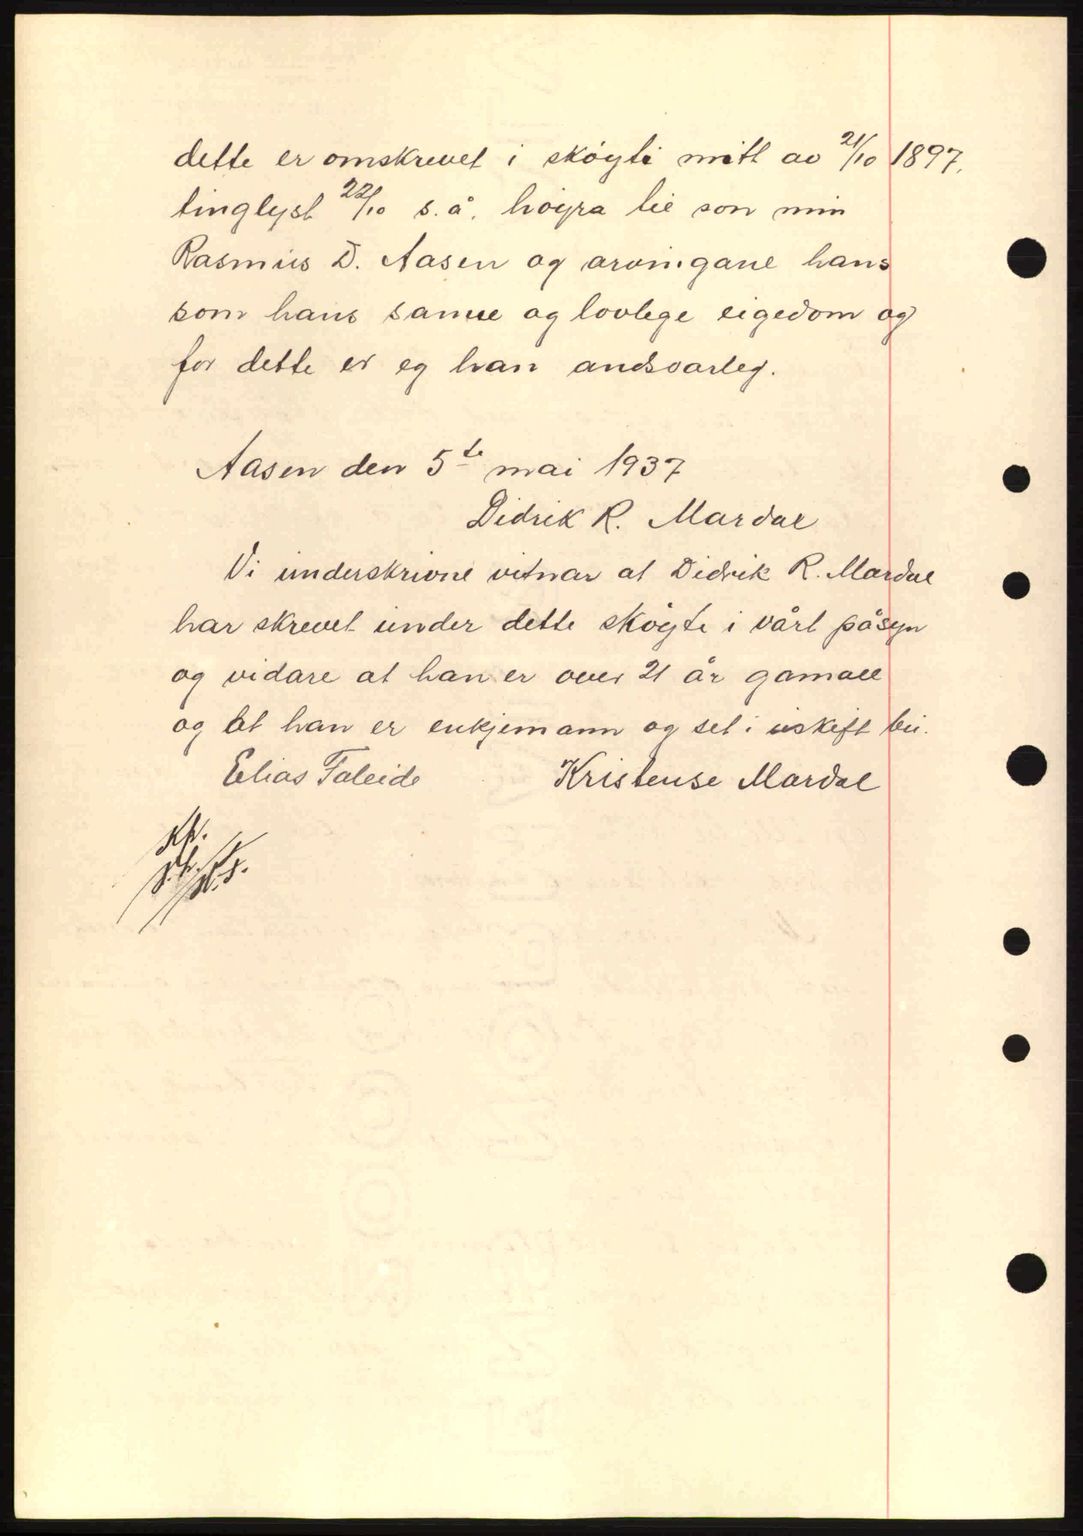 dette er omskrevet i skøyti mitt av 21/10 1897.
tinglyst 22/10 s.å. høyra til son min
Rasmus D. Aasen og arvingane hans
som hans sanne og lovlege eigedom og
for dette er eg han andsvarleg.
Aasen den 5te mai 1937
Didrik R. Mardal
Vi underskrivne vitnar at Didrik R. Mardal
har skrevet under dette skøyte i vårt påsyn
og vidare at han er over 21 år gamall
og at han er enkjemann og set i uskift bu.
Elias Faleide Kristense Mardal